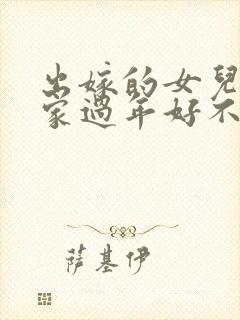 出嫁的女兒
家過年好不
萨基伊